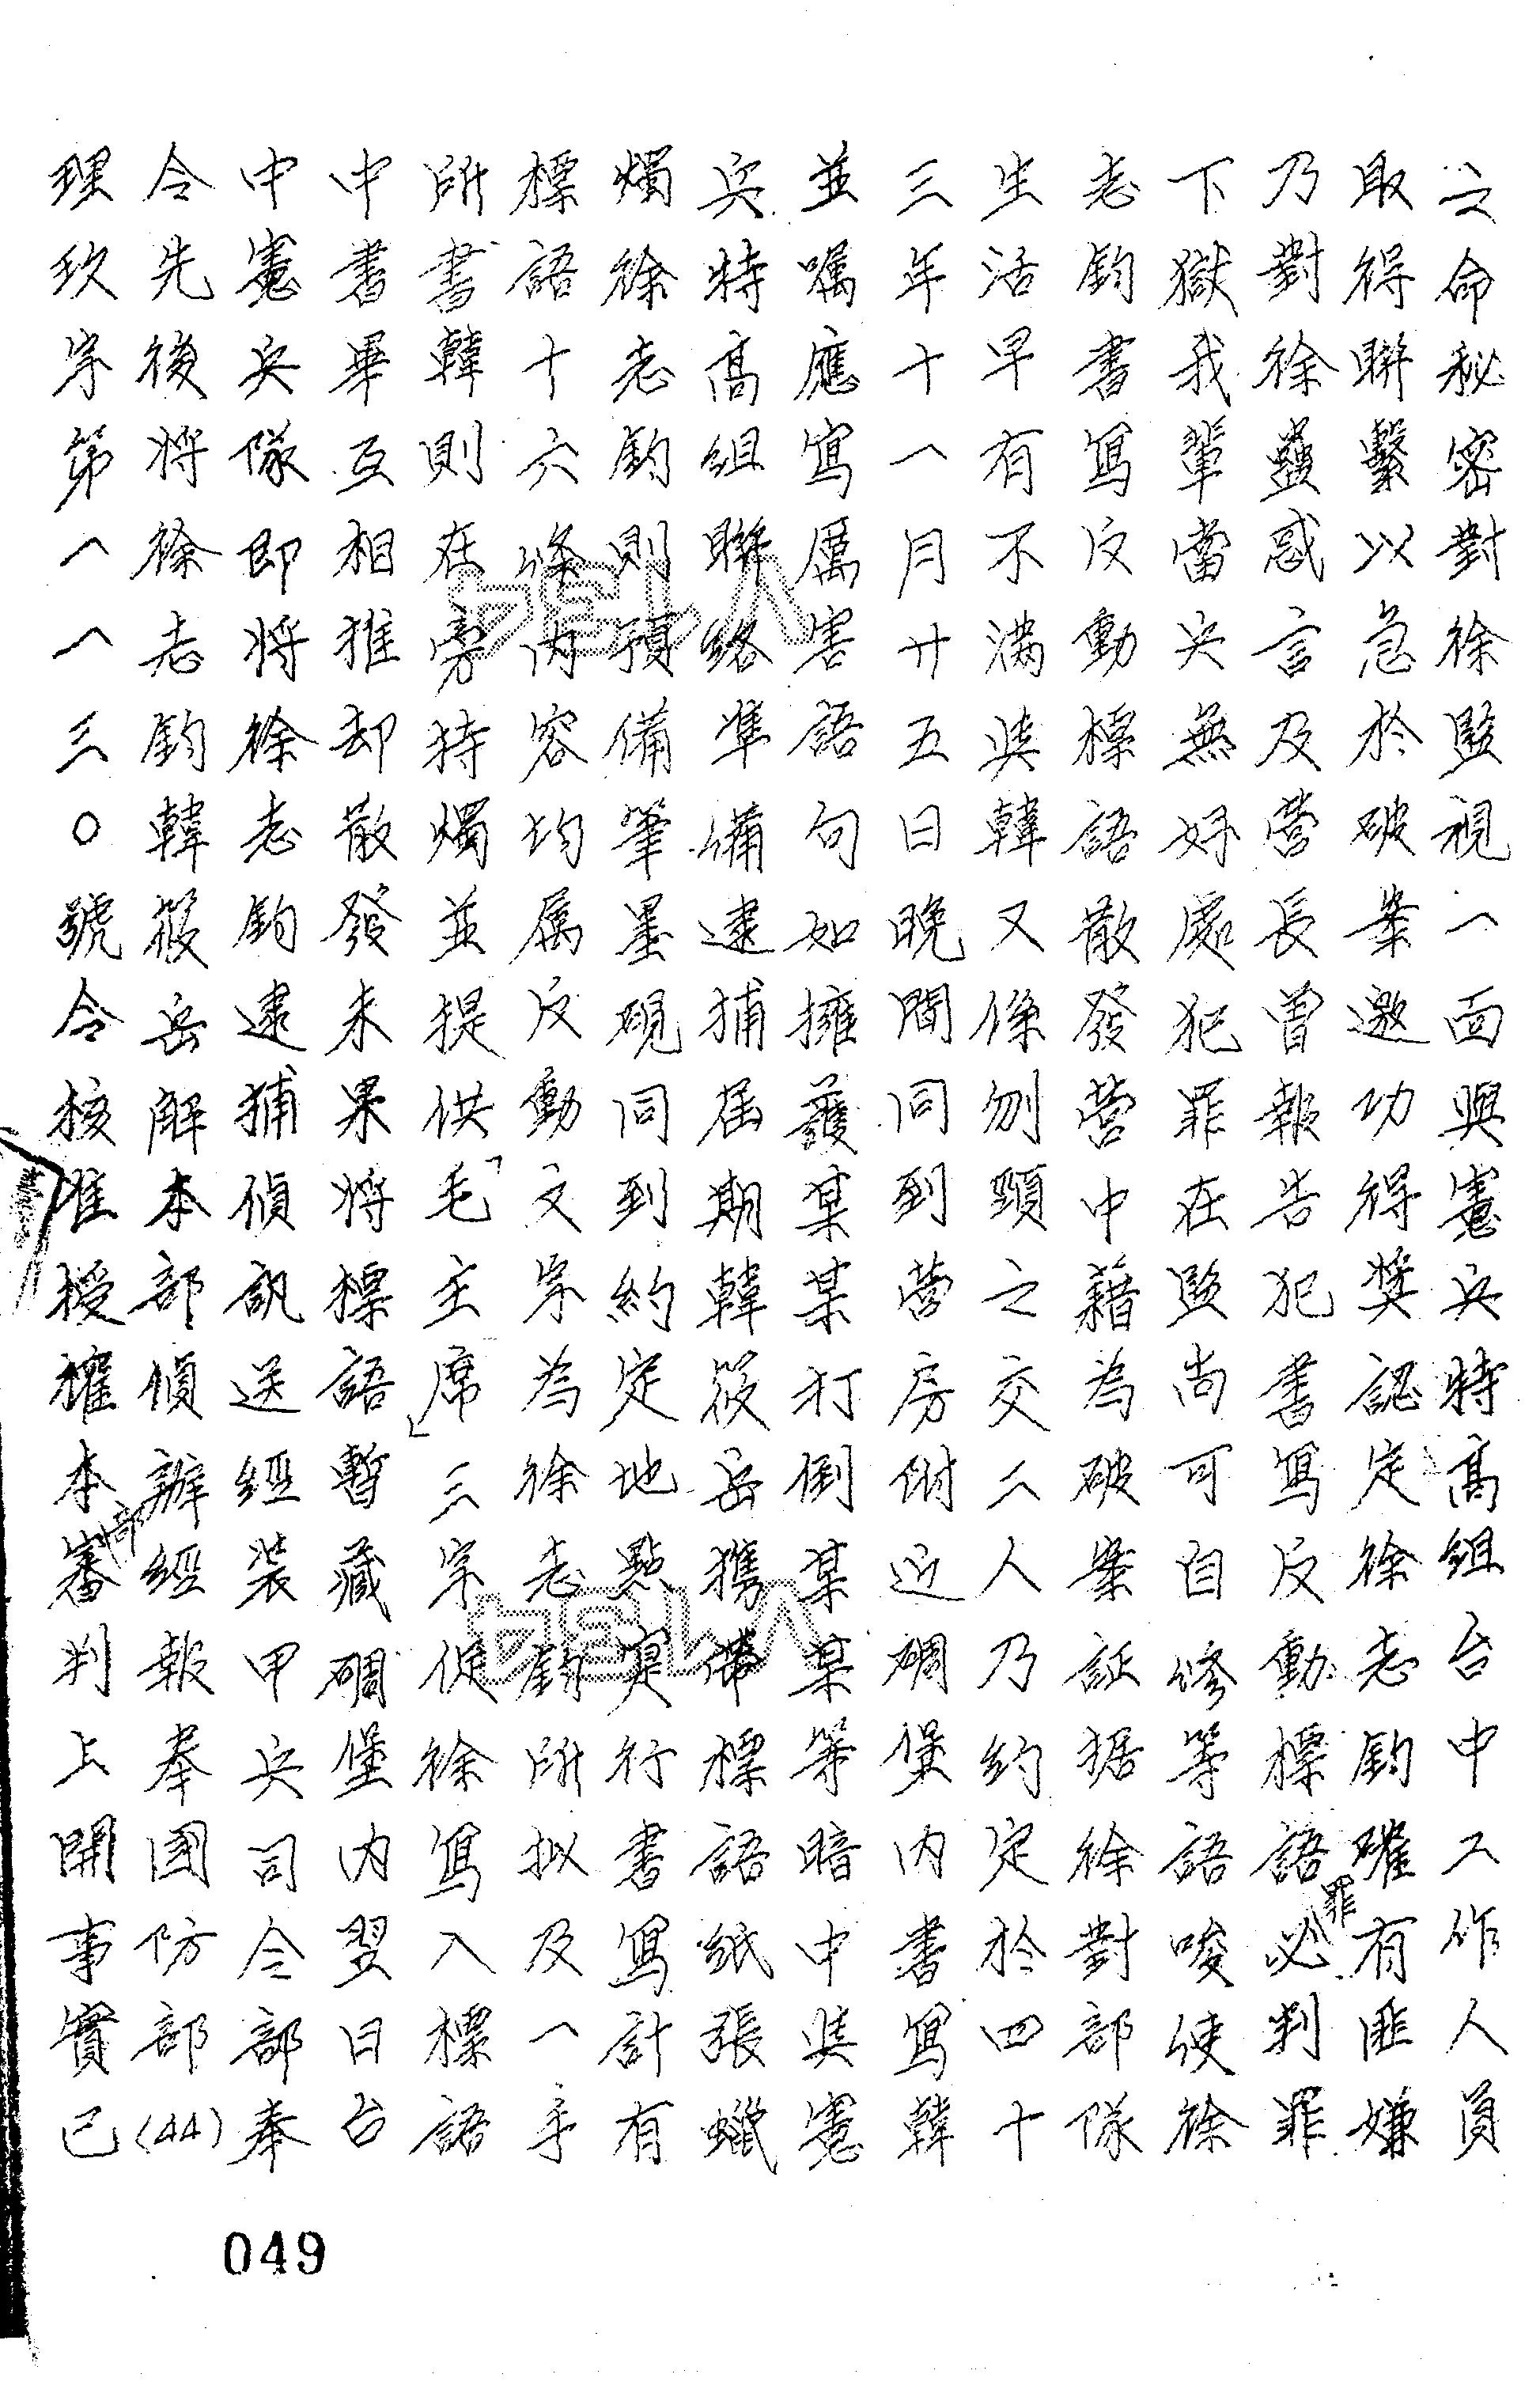 之命秘密對徐監視一面與憲兵特高組台中工作人員
取得聯繫以急於破案邀功得獎認定徐志鈞確有匪嫌
乃對徐蠱惑言及營長曾報告犯書寫反動標語罪必判罪
下獄我輩當兵無好處犯罪在監尚可自修等語唆使徐
志鈞書寫反動標語散發營中藉為破案証据徐對部隊
生活早有不滿與韓又係刎頸之交二人乃約定於四十
三年十一月廿五日晚間同到營房附近碉堡內書寫韓
並囑應寫厲害語句如擁護某某打倒某某等暗中與憲
兵特高組聯絡準備逮捕屆期韓筱岳携帶標語紙張蠟
燭徐志鈞則預備筆墨硯同到約定地點實行書寫計有
標語十六條內容均属反動文字為徐志鈞所拟及一手
所書韓則在旁持燭並提供「毛主席」三字促徐寫入標語
中書畢互相推却散發未果將標語暫藏碉堡內翌日台
中憲兵隊即將徐志鈞逮捕偵訊送經裝甲兵司令部奉
令先後將徐志鈞韓筱岳解本部偵辦經報奉國防部(44)
理玖字第一一三〇號令核准授權本部審判上開事實已
049